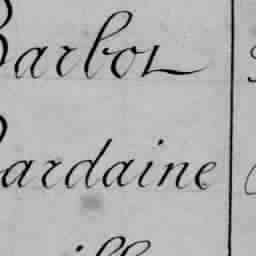 Barbot
Bardaine